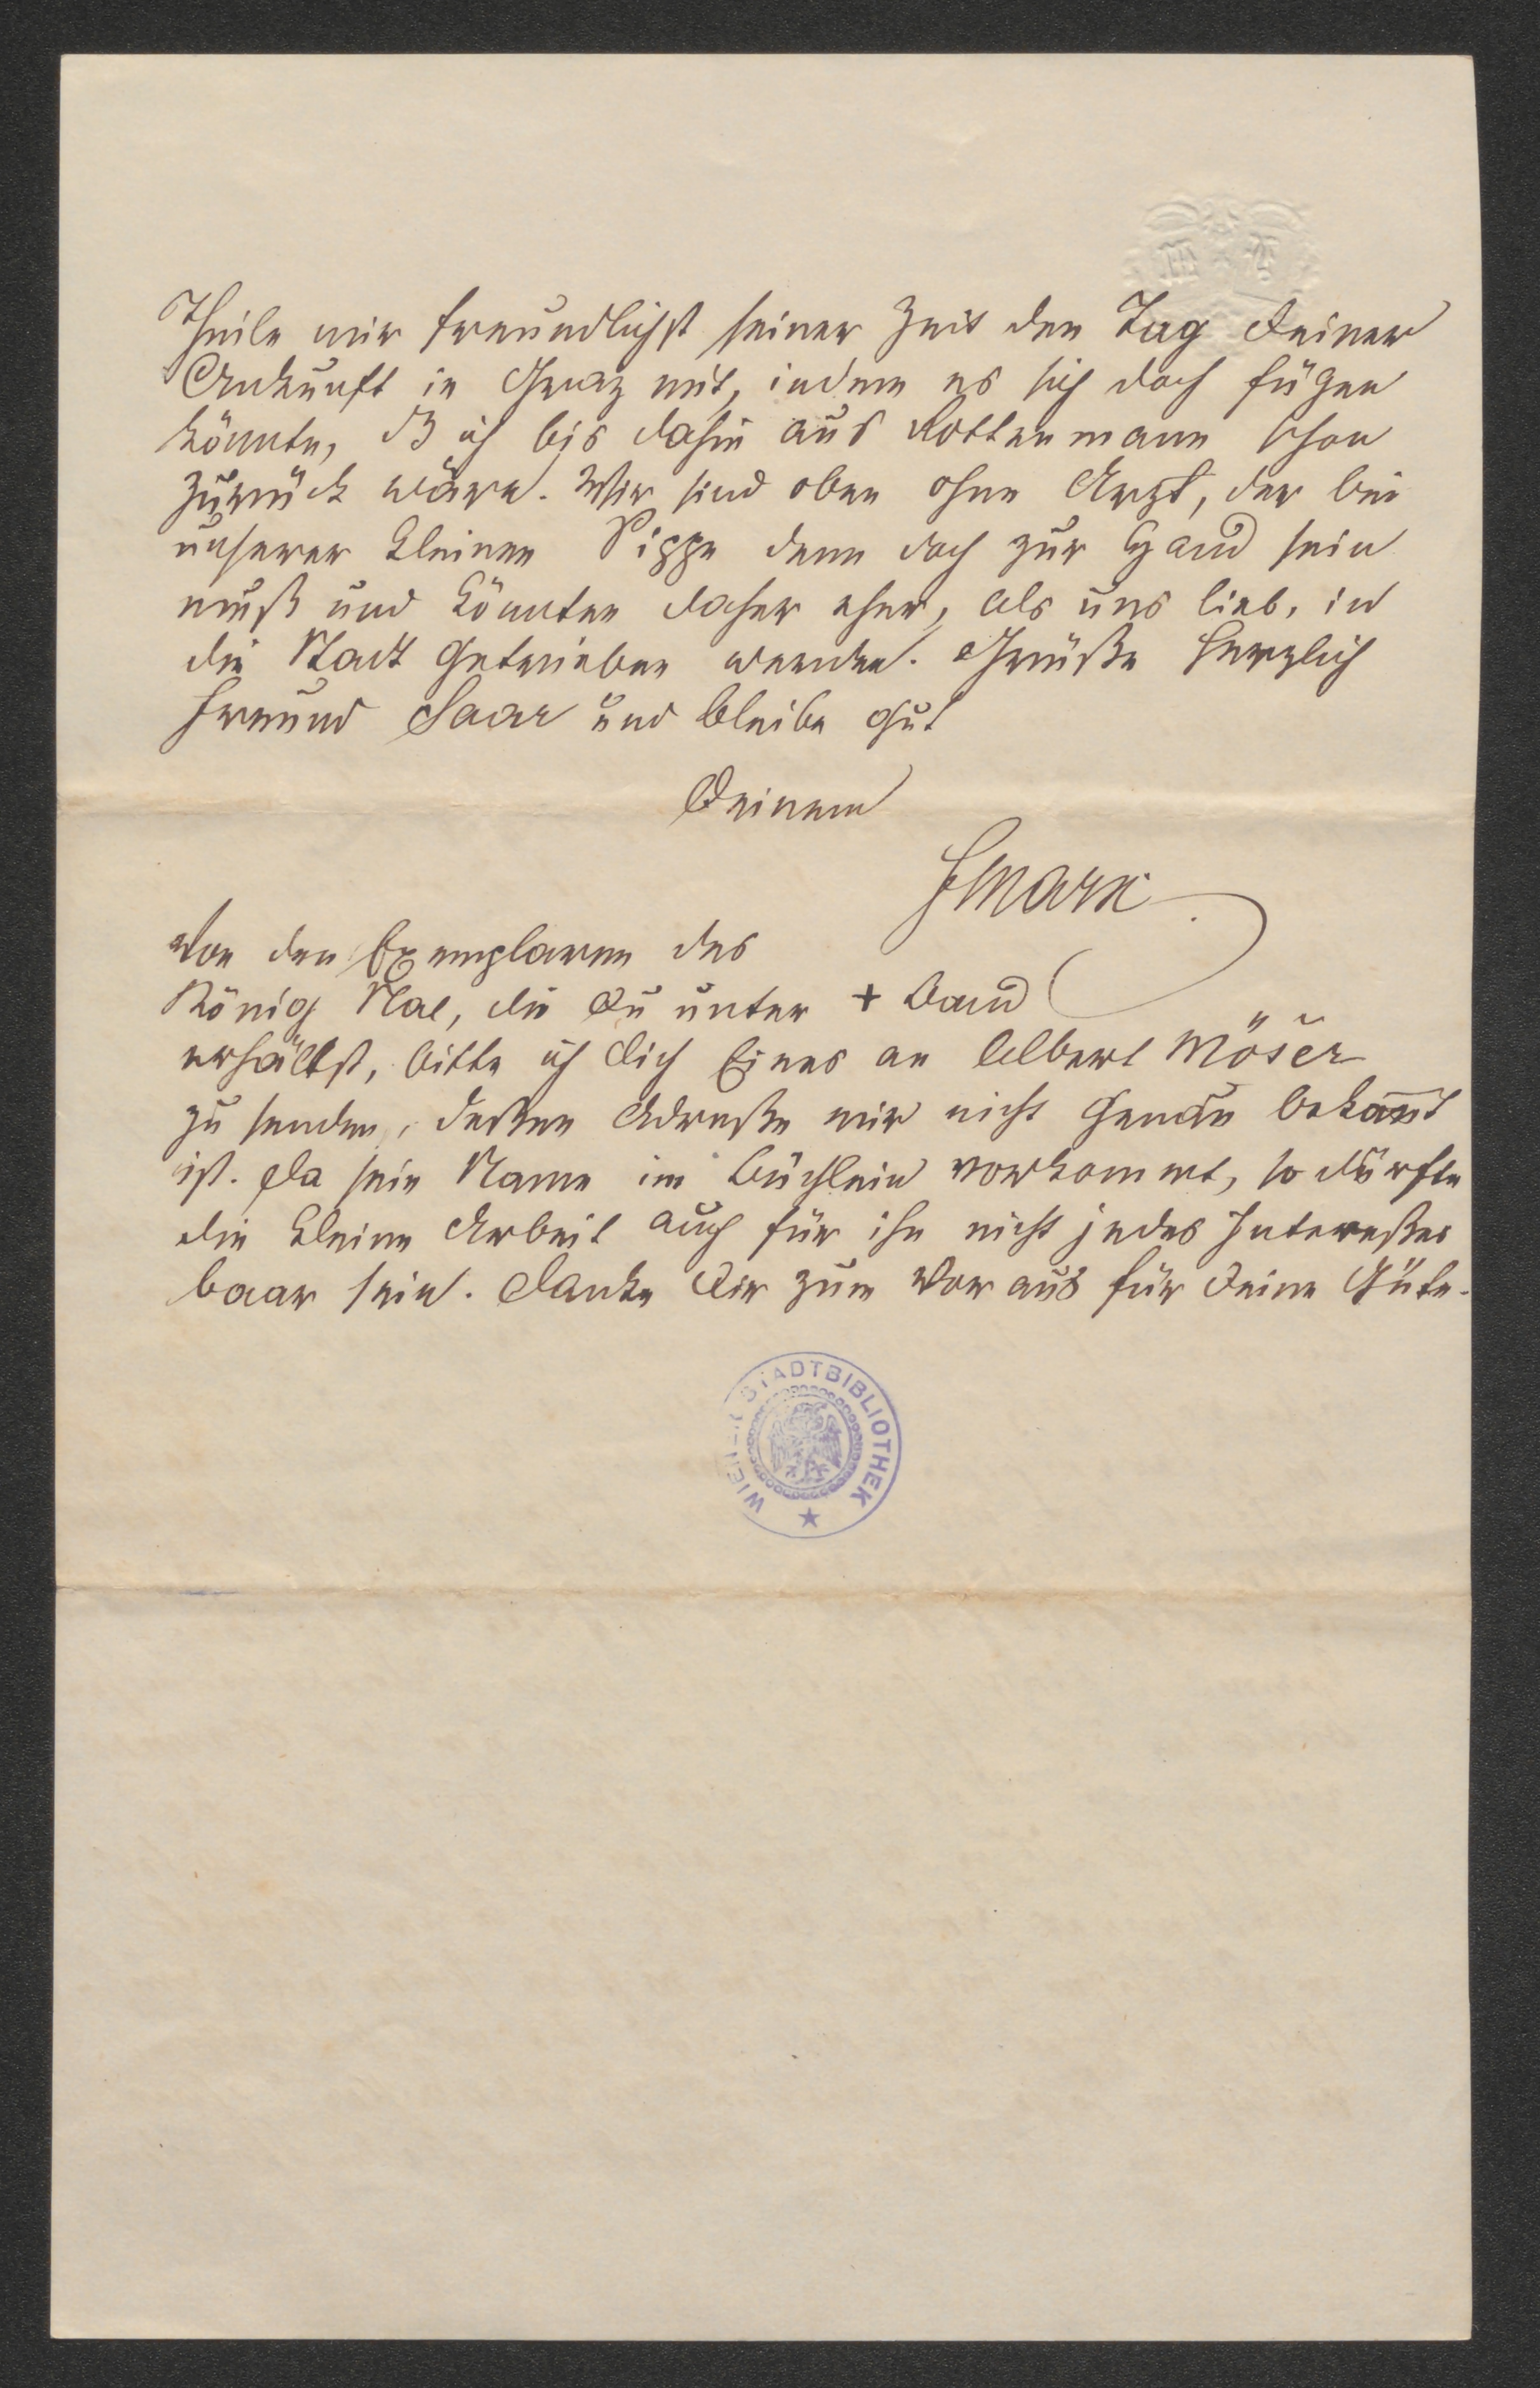 Theile mir freundlichst seiner Zeit den Tag Deiner
Ankunft in Graz mit, indem es sich doch fügen
könnte, dß ich bis dahin aus Rottenmann schon
zurück wäre. Wir sind oben ohne Arzt, der bei
unserer kleinen Sippe denn doch zur Hand sein
muß und könnten daher eher, als uns lieb, in
die Stadt getrieben werden. Grüße herzlich
Freund Saar und bleibe gut
Deinem
FMarx
Von den Exemplaren des
König Nal, die Du unter + Band
erhältst, bitte ich Dich Eines an Albert Möser
zu senden, deßen Adreße mir nicht genau bekan̅t
ist. Da sein Name im Büchlein vorkommt, so dürfte
die kleine Arbeit auch für ihn nicht jedes Intereßes
baar sein. Danke Dir zum Voraus für Deine Güte.
WIENER STADTBIBLIOTHEK